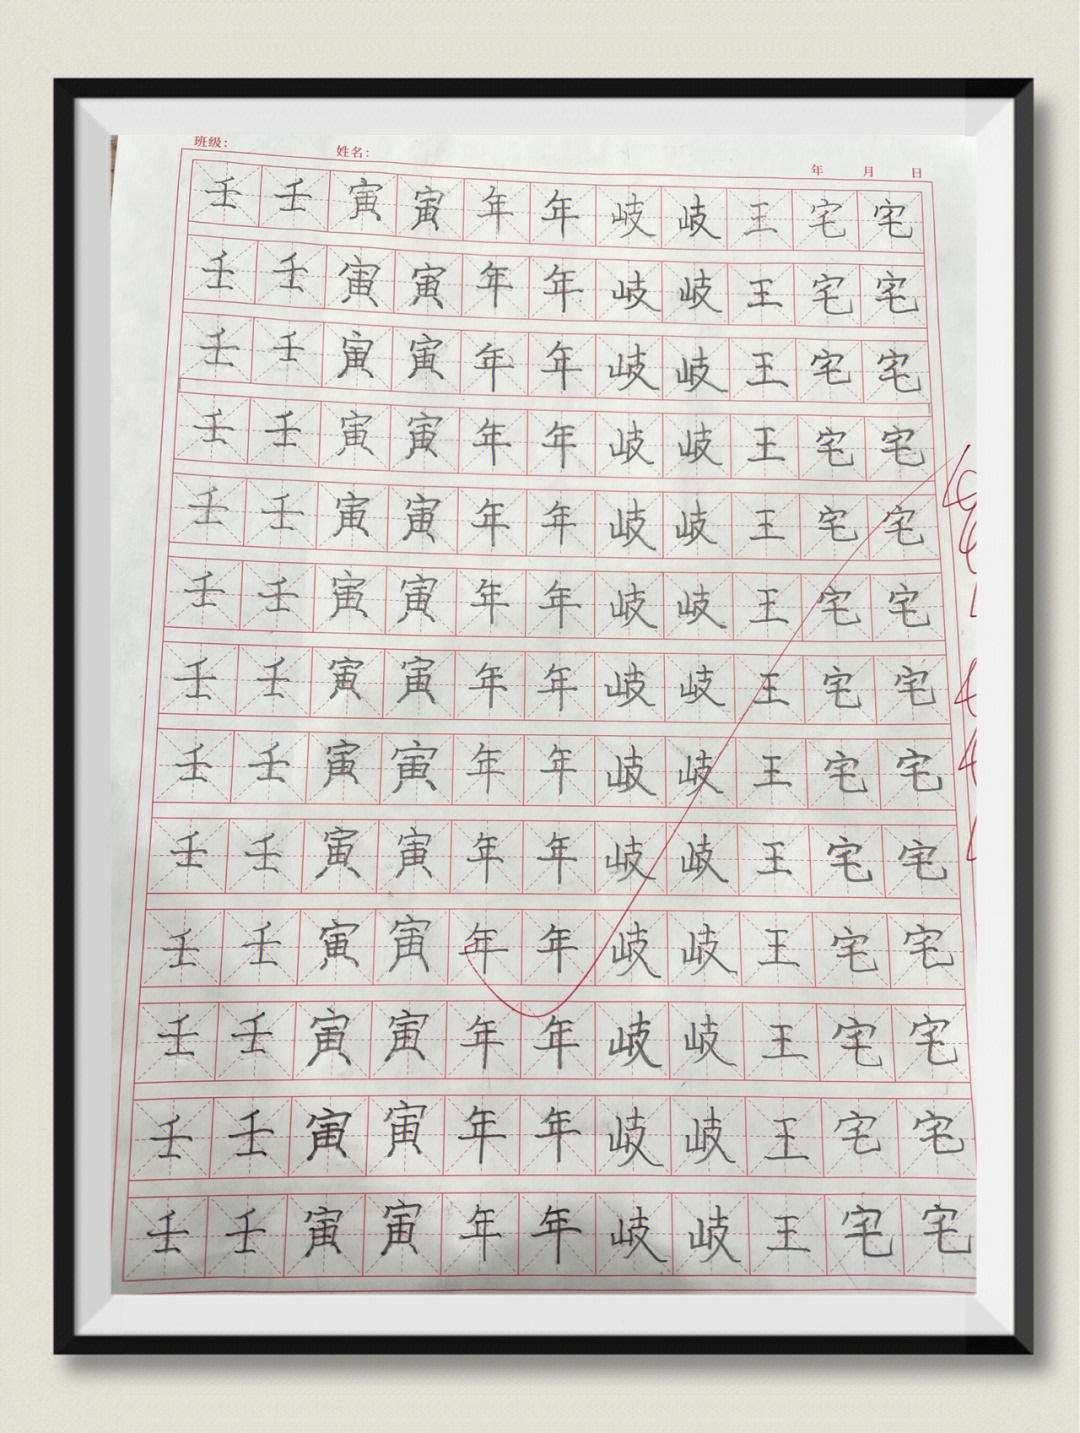 班级： 姓名： 年 月 日
壬壬寅寅年年岐岐王宅宅
壬壬寅寅年年岐岐王宅宅
壬壬寅寅年年岐岐王宅宅
壬壬寅寅年年岐岐王宅宅
壬壬寅寅年年岐岐王宅宅
壬壬寅寅年年岐岐王宅宅
壬壬寅寅年年岐岐王宅宅
壬壬寅寅年年岐岐王宅宅
壬壬寅寅年年岐岐王宅宅
壬壬寅寅年年岐岐王宅宅
壬壬寅寅年年岐岐王宅宅
壬壬寅寅年年岐岐王宅宅
壬壬寅寅年年岐岐王宅宅